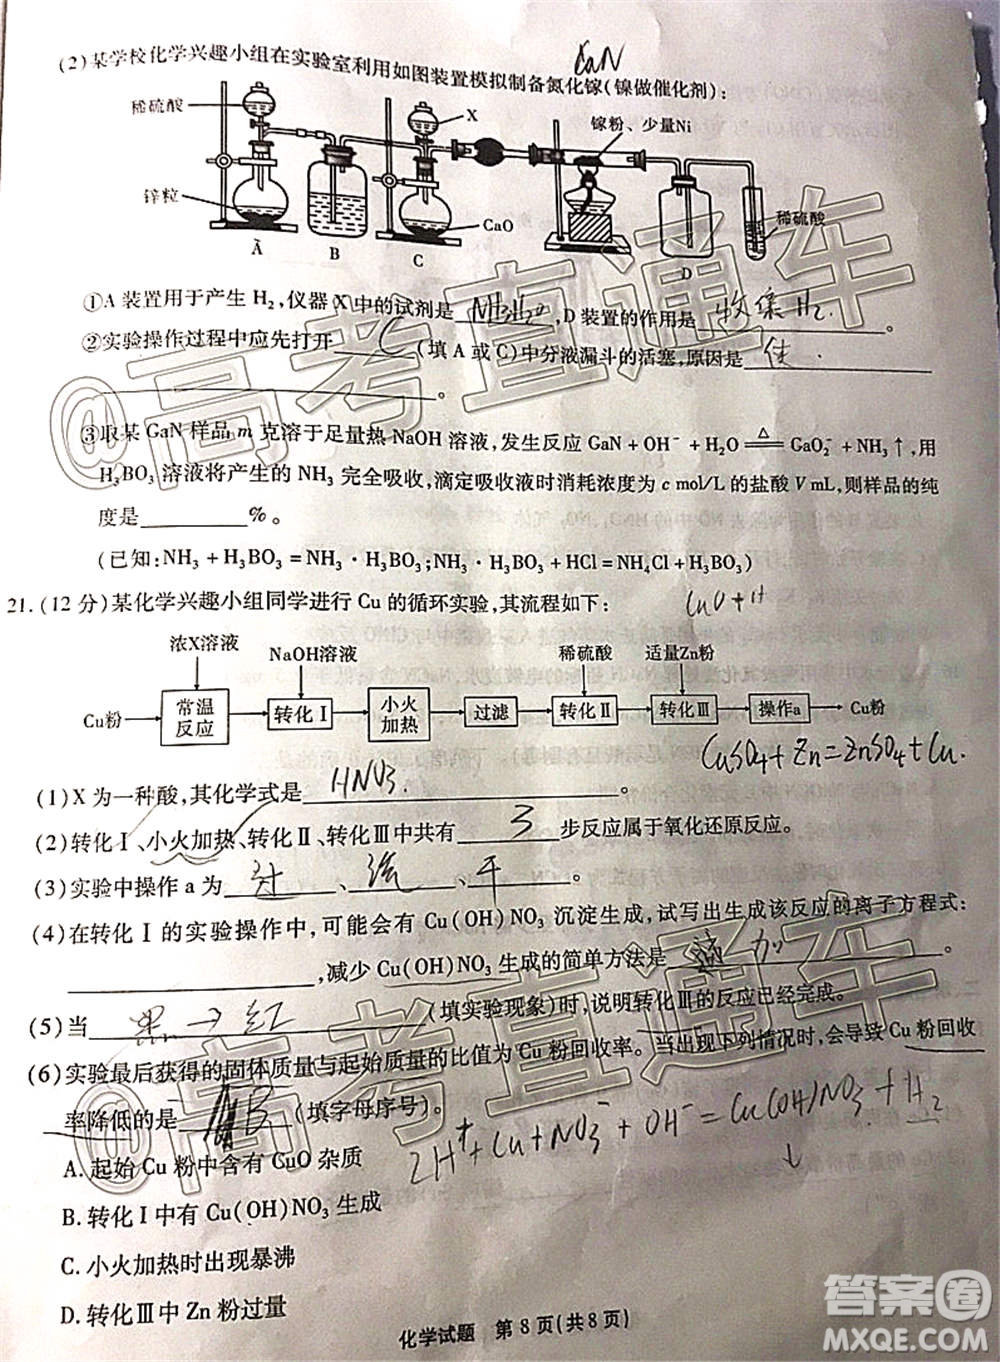 (2)某学校化学兴趣小组在实验室利用如图装置模拟制备氮化镓(镍做催化剂):
GaN
稀硫酸
X
镓粉、少量Ni
锌粒
CaO
稀硫酸
A
B
C
D
①A 装置用于产生 H₂,仪器 X 中的试剂是 NH₃H₂O ,D 装置的作用是 收集H₂.。
②实验操作过程中应先打开 C (填 A 或 C)中分液漏斗的活塞,原因是 使
。
③取某 GaN 样品 m 克溶于足量热 NaOH 溶液,发生反应 GaN + OH⁻ + H₂O △ GaO₂⁻ + NH₃↑,用
H₃BO₃ 溶液将产生的 NH₃ 完全吸收,滴定吸收液时消耗浓度为 c mol/L 的盐酸 V mL,则样品的纯
度是________%。
(已知:NH₃ + H₃BO₃ = NH₃·H₃BO₃,NH₃·H₃BO₃ + HCl = NH₄Cl + H₃BO₃)
21.(12 分)某化学兴趣小组同学进行 Cu 的循环实验,其流程如下:
CuO+H
浓X溶液
NaOH溶液
稀硫酸
适量Zn粉
Cu粉
常温反应
转化Ⅰ
小火加热
过滤
转化Ⅱ
转化Ⅲ
操作a
Cu粉
CuSO₄+Zn=ZnSO₄+Cu.
(1)X 为一种酸,其化学式是 HNO₃. 。
(2)转化Ⅰ、小火加热、转化Ⅱ、转化Ⅲ中共有 3 步反应属于氧化还原反应。
(3)实验中操作 a 为 过 、 洗 、 干 。
(4)在转化Ⅰ的实验操作中,可能会有 Cu(OH)NO₃ 沉淀生成,试写出生成该反应的离子方程式:
________,减少 Cu(OH)NO₃ 生成的简单方法是 加 。
(5)当 黑→红 (填实验现象)时,说明转化Ⅲ的反应已经完成。
(6)实验最后获得的固体质量与起始质量的比值为 Cu 粉回收率。当出现下列情况时,会导致 Cu 粉回收
率降低的是 B (填字母序号)。
2H⁺+Cu+NO₃⁻+OH⁻=Cu(OH)NO₃+H₂
↓
A. 起始 Cu 粉中含有 CuO 杂质
B. 转化Ⅰ中有 Cu(OH)NO₃ 生成
C. 小火加热时出现暴沸
D. 转化Ⅲ中 Zn 粉过量
化学试题 第 8 页(共 8 页)
@高考直通车
@高考直通车
答案圈
MXQE.COM